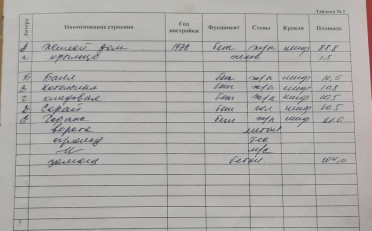 Таблица № 1
Литера Наименование строения Год постройки Фундамент Стены Кровля Площадь
А Жилой дом 1978 бет ж/к шиф 88.8
а крыльцо 1.5
Б Баня бет ж/к шиф 10,5
В Котельная бет ж/к шиф 10.8
Г кладовая бет ж/к шиф 10.5
Д Сарай бет шиф 10.5
Е Гараж бет ж/к шиф 21.0
ворота метал
огражд
замощ бетон 104,0